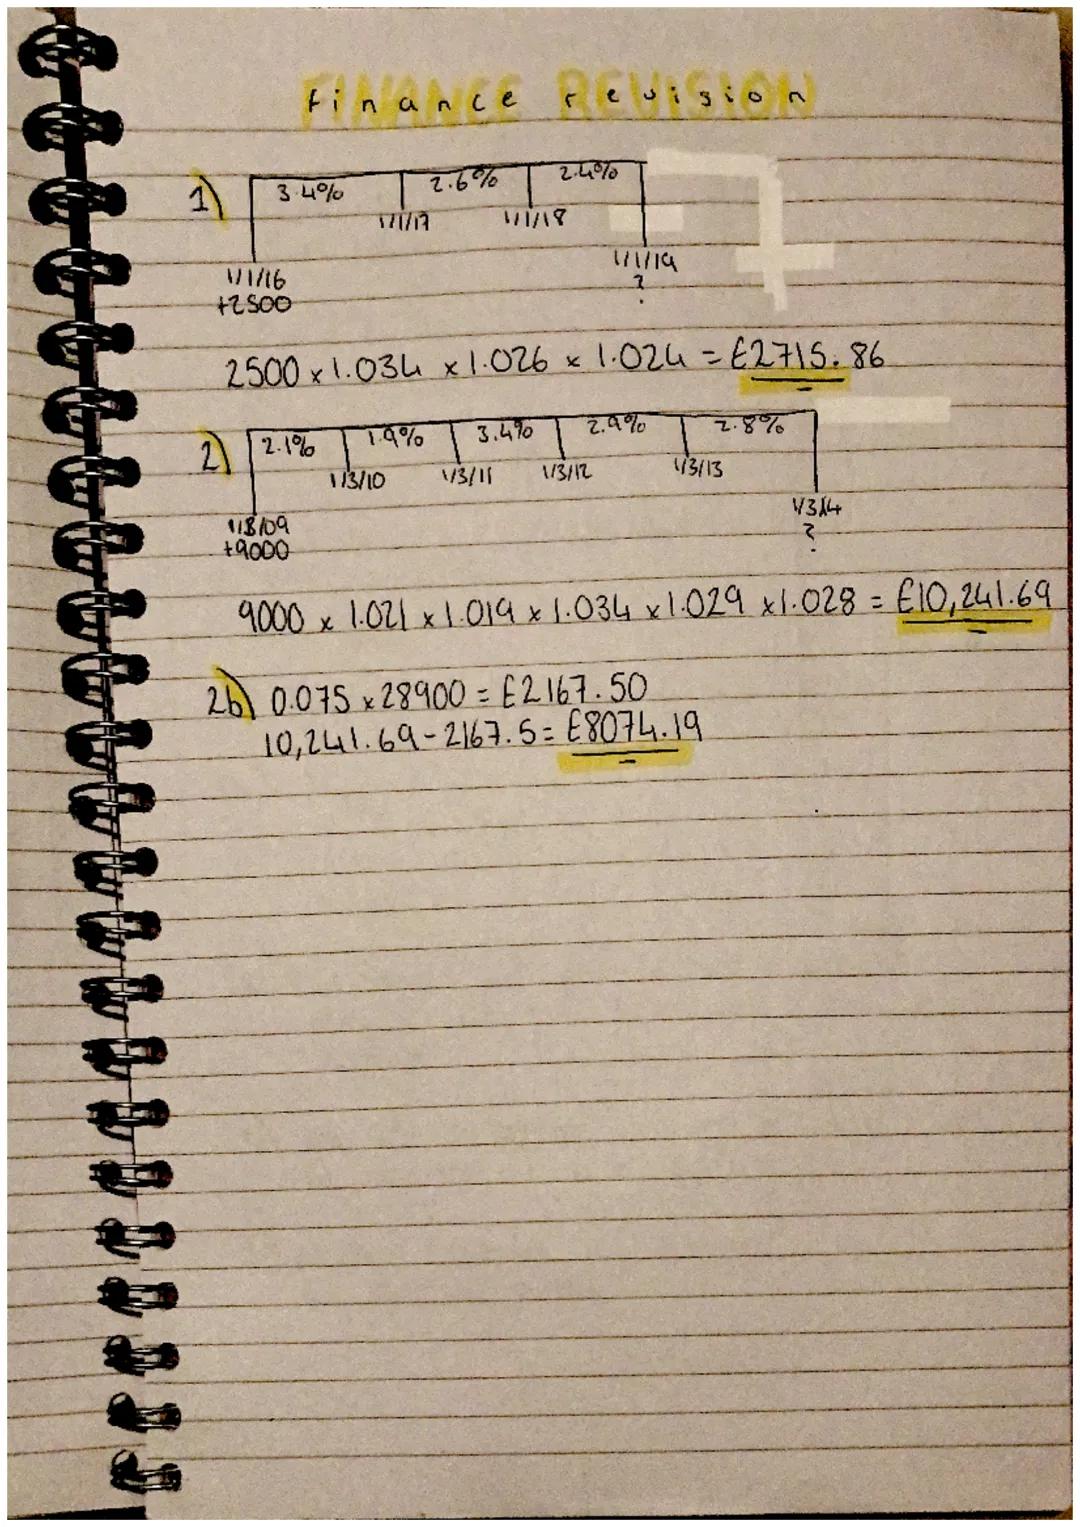 FINANCE REVISION
finance revision
1) 3.4% 2.6% 2.4%
1/1/17 1/1/18
1/1/16 1/1/19
+2500 ?
2500 x 1.034 x 1.026 x 1.024 = £2715.86
2) 2.1% 1.9% 3.4% 2.9% 2.8%
1/3/10 1/3/11 1/3/12 1/3/13
1/3/09 1/3/14
+9000 ?
9000 x 1.021 x 1.019 x 1.034 x 1.029 x 1.028 = £10,241.69
2b) 0.075 x 28900 = £2167.50
10,241.69 - 2167.5 = £8074.19